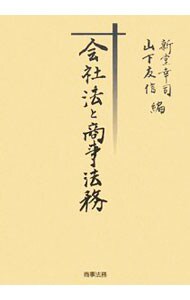 会社法と商事法務
新堂幸司
山下友信
編
商事法務